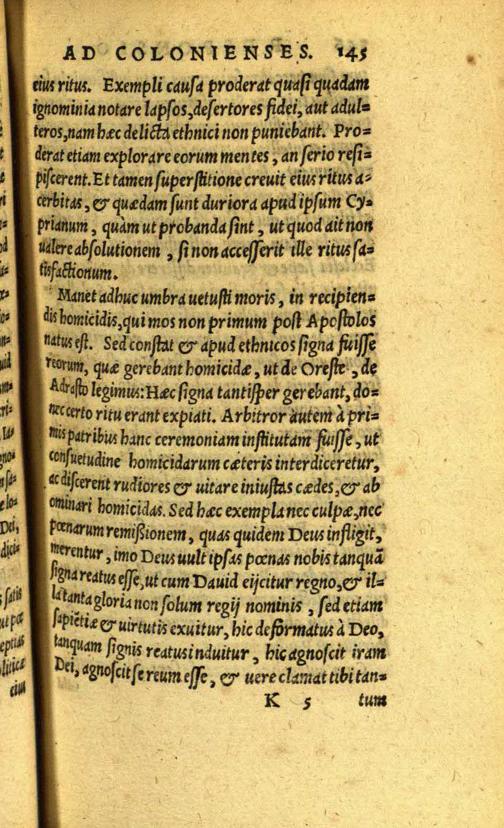 AD COLONIENSES. 145
eius ritus. Exempli causa proderat quasi quadam
ignominia notare lapsos, desertores fidei, aut adul=
teros, nam hæc delicta ethnici non puniebant. Pro=
derat etiam explorare eorum mentes, an serio resi=
piscerent. Et tamen superstitione creuit eius ritus a=
cerbitas, & quædam sunt duriora apud ipsum Cy=
prianum, quàm ut probanda sint, ut quod ait non
ualere absolutionem, si non accesserit ille ritus sa=
tisfactionum.
Manet adhuc umbra uetusti moris, in recipien=
dis homicidis, qui mos non primum post Apostolos
natus est. Sed constat & apud ethnicos signa fuisse
reorum, quæ gerebant homicidæ, ut de Oreste, de
Adrasto legimus: Hæc signa tantisper gerebant, do=
nec certo ritu erant expiati. Arbitror autem à pri=
mis patribus hanc ceremoniam institutam fuisse, ut
consuetudine homicidarum cæteris interdiceretur,
ac discerent rudiores & uitare iniustas cædes, & ab
ominari homicidas. Sed hæc exempla nec culpæ, nec
pœnarum remißionem, quas quidem Deus infligit,
merentur, imo Deus uult ipsas pœnas nobis tanquã
signa reatus esse, ut cum Dauid eijcitur regno, & il=
la tanta gloria non solum regij nominis, sed etiam
sapiẽtiæ & uirtutis exuitur, hic deformatus à Deo,
tanquam signis reatus induitur, hic agnoscit iram
Dei, agnoscit se reum esse, & uere clamat tibi tan=
K 5 tum